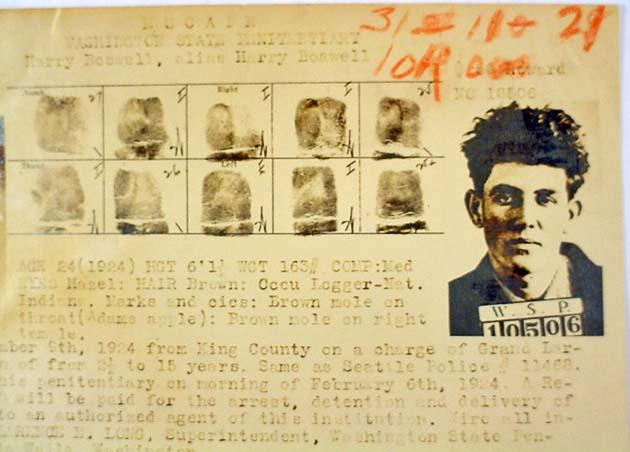 E S C A P E
WASHINGTON STATE PENITENTIARY
Harry Boswell, alias Harry Boswell
No 10506
Right
Left
AGE 24(1924) HGT 6'1½ WGT 163# COMP:Med
EYES Hazel: HAIR Brown: Occu Logger-Nat.
Indiana. Marks and cics: Brown mole on
throat(Adams apple): Brown mole on right
temple.
mber 9th, 1924 from King County on a charge of Grand Lar-
of from 2½ to 15 years. Same as Seattle Police # 11468.
his penitentiary on morning of February 6th, 1924. A Re-
will be paid for the arrest, detention and delivery of
to an authorized agent of this institution. Wire all in-
LARENCE E. LONG, Superintendent, Washington State Pen-
Walla, Washington
W. S. P.
10506